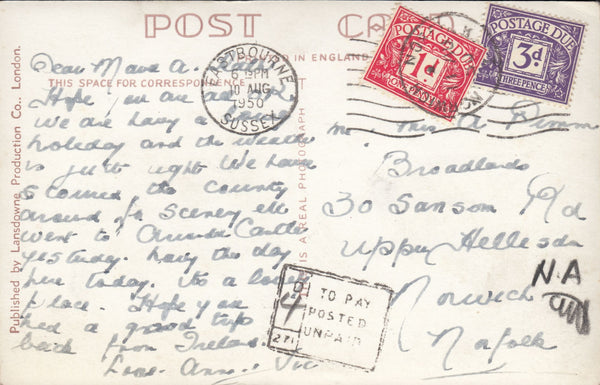 POST CARD
PRINTED IN ENGLAND
THIS SPACE FOR CORRESPONDENCE
Published by Lansdowne Production Co., London.
IS A REAL PHOTOGRAPH
EASTBOURNE
6 15PM
10 AUG
1950
SUSSEX
POSTAGE DUE
1D
ONE PENNY
POSTAGE DUE
3D
THREE PENCE
Dear
Hope you are all
We are having a
holiday and the weather
is just right We have
scoured the county
around for scenery etc
went to Castle
yesterday. having the day
here today. Its a lovely
place. Hope you
had a good trip
back from Ireland.
Love. Ann & Vic
Broadlands
30 Sanson Rd
Upper Hellesdon
Norwich
Norfolk
N.A
D
4
271
TO PAY
POSTED
UNPAID